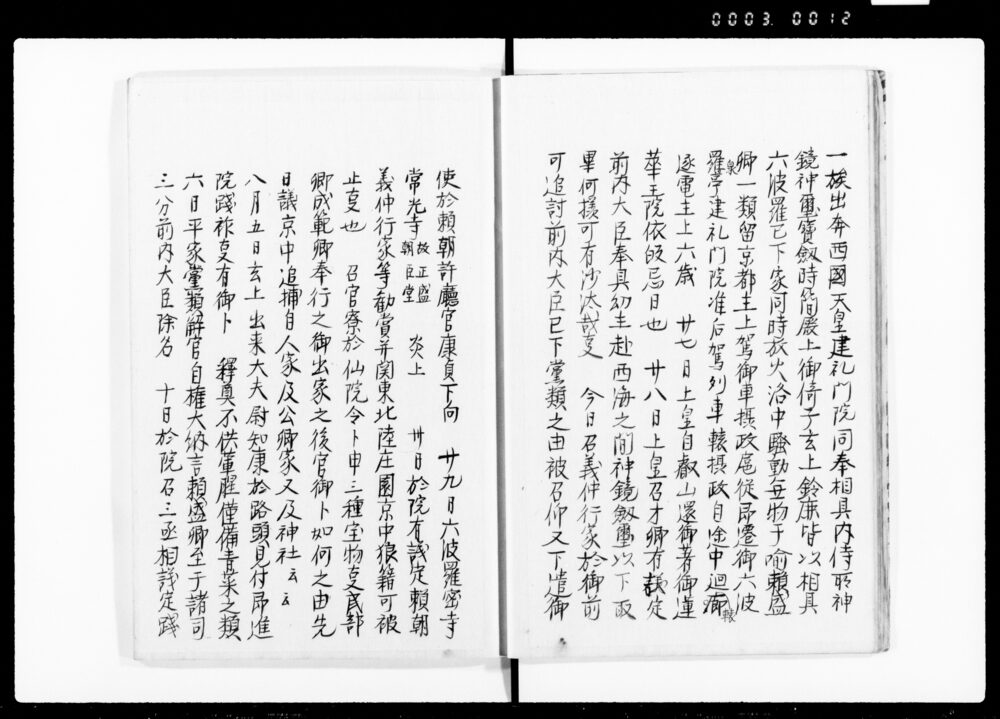 0003 0012
一族出奔西國天皇建礼門院同奉相具内侍所神
鏡神璽寶劔時簡殿上御倚子玄上鈴鹿皆以相具
六波羅已下家同時放火洛中騒動無物于喩頼盛
卿一類留京都主上駕御車摂政扈従即遷御六波
羅泉亭建礼門院准后駕列車轅摂政自途中廻轅
逐電主上六歳　廿七日上皇自叡山還御著御蓮
華王院依故忌日也　廿八日上皇召才卿有議定
前内大臣奉具幼主赴西海之間神鏡劔璽以下敢
畢何様可有沙汰哉事　今日召義仲行家於御前
可追討前内大臣已下黨類之由被召仰又下遣御
使於頼朝許廳官康貞下向　廿九日六波羅密寺
常光寺故正盛朝臣堂　炎上　卅日於院有議定頼朝
義仲行家等勧賞并関東北陸庄園京中狼籍可被
止事也　召官寮於仙院令卜申三種宝物事民部
卿成範卿奉行之御出家之後官御卜如何之由先
日議京中追捕自人家及公卿家又及神社云云
八月五日玄上出来大夫尉知康於路頭見付即進
院践祚事有御卜　釋奠不供葷腥僅備青菜之類
六日平家黨類解官自権大納言頼盛卿至于諸司
三分前内大臣除名　十日於院召三丞相議定踐